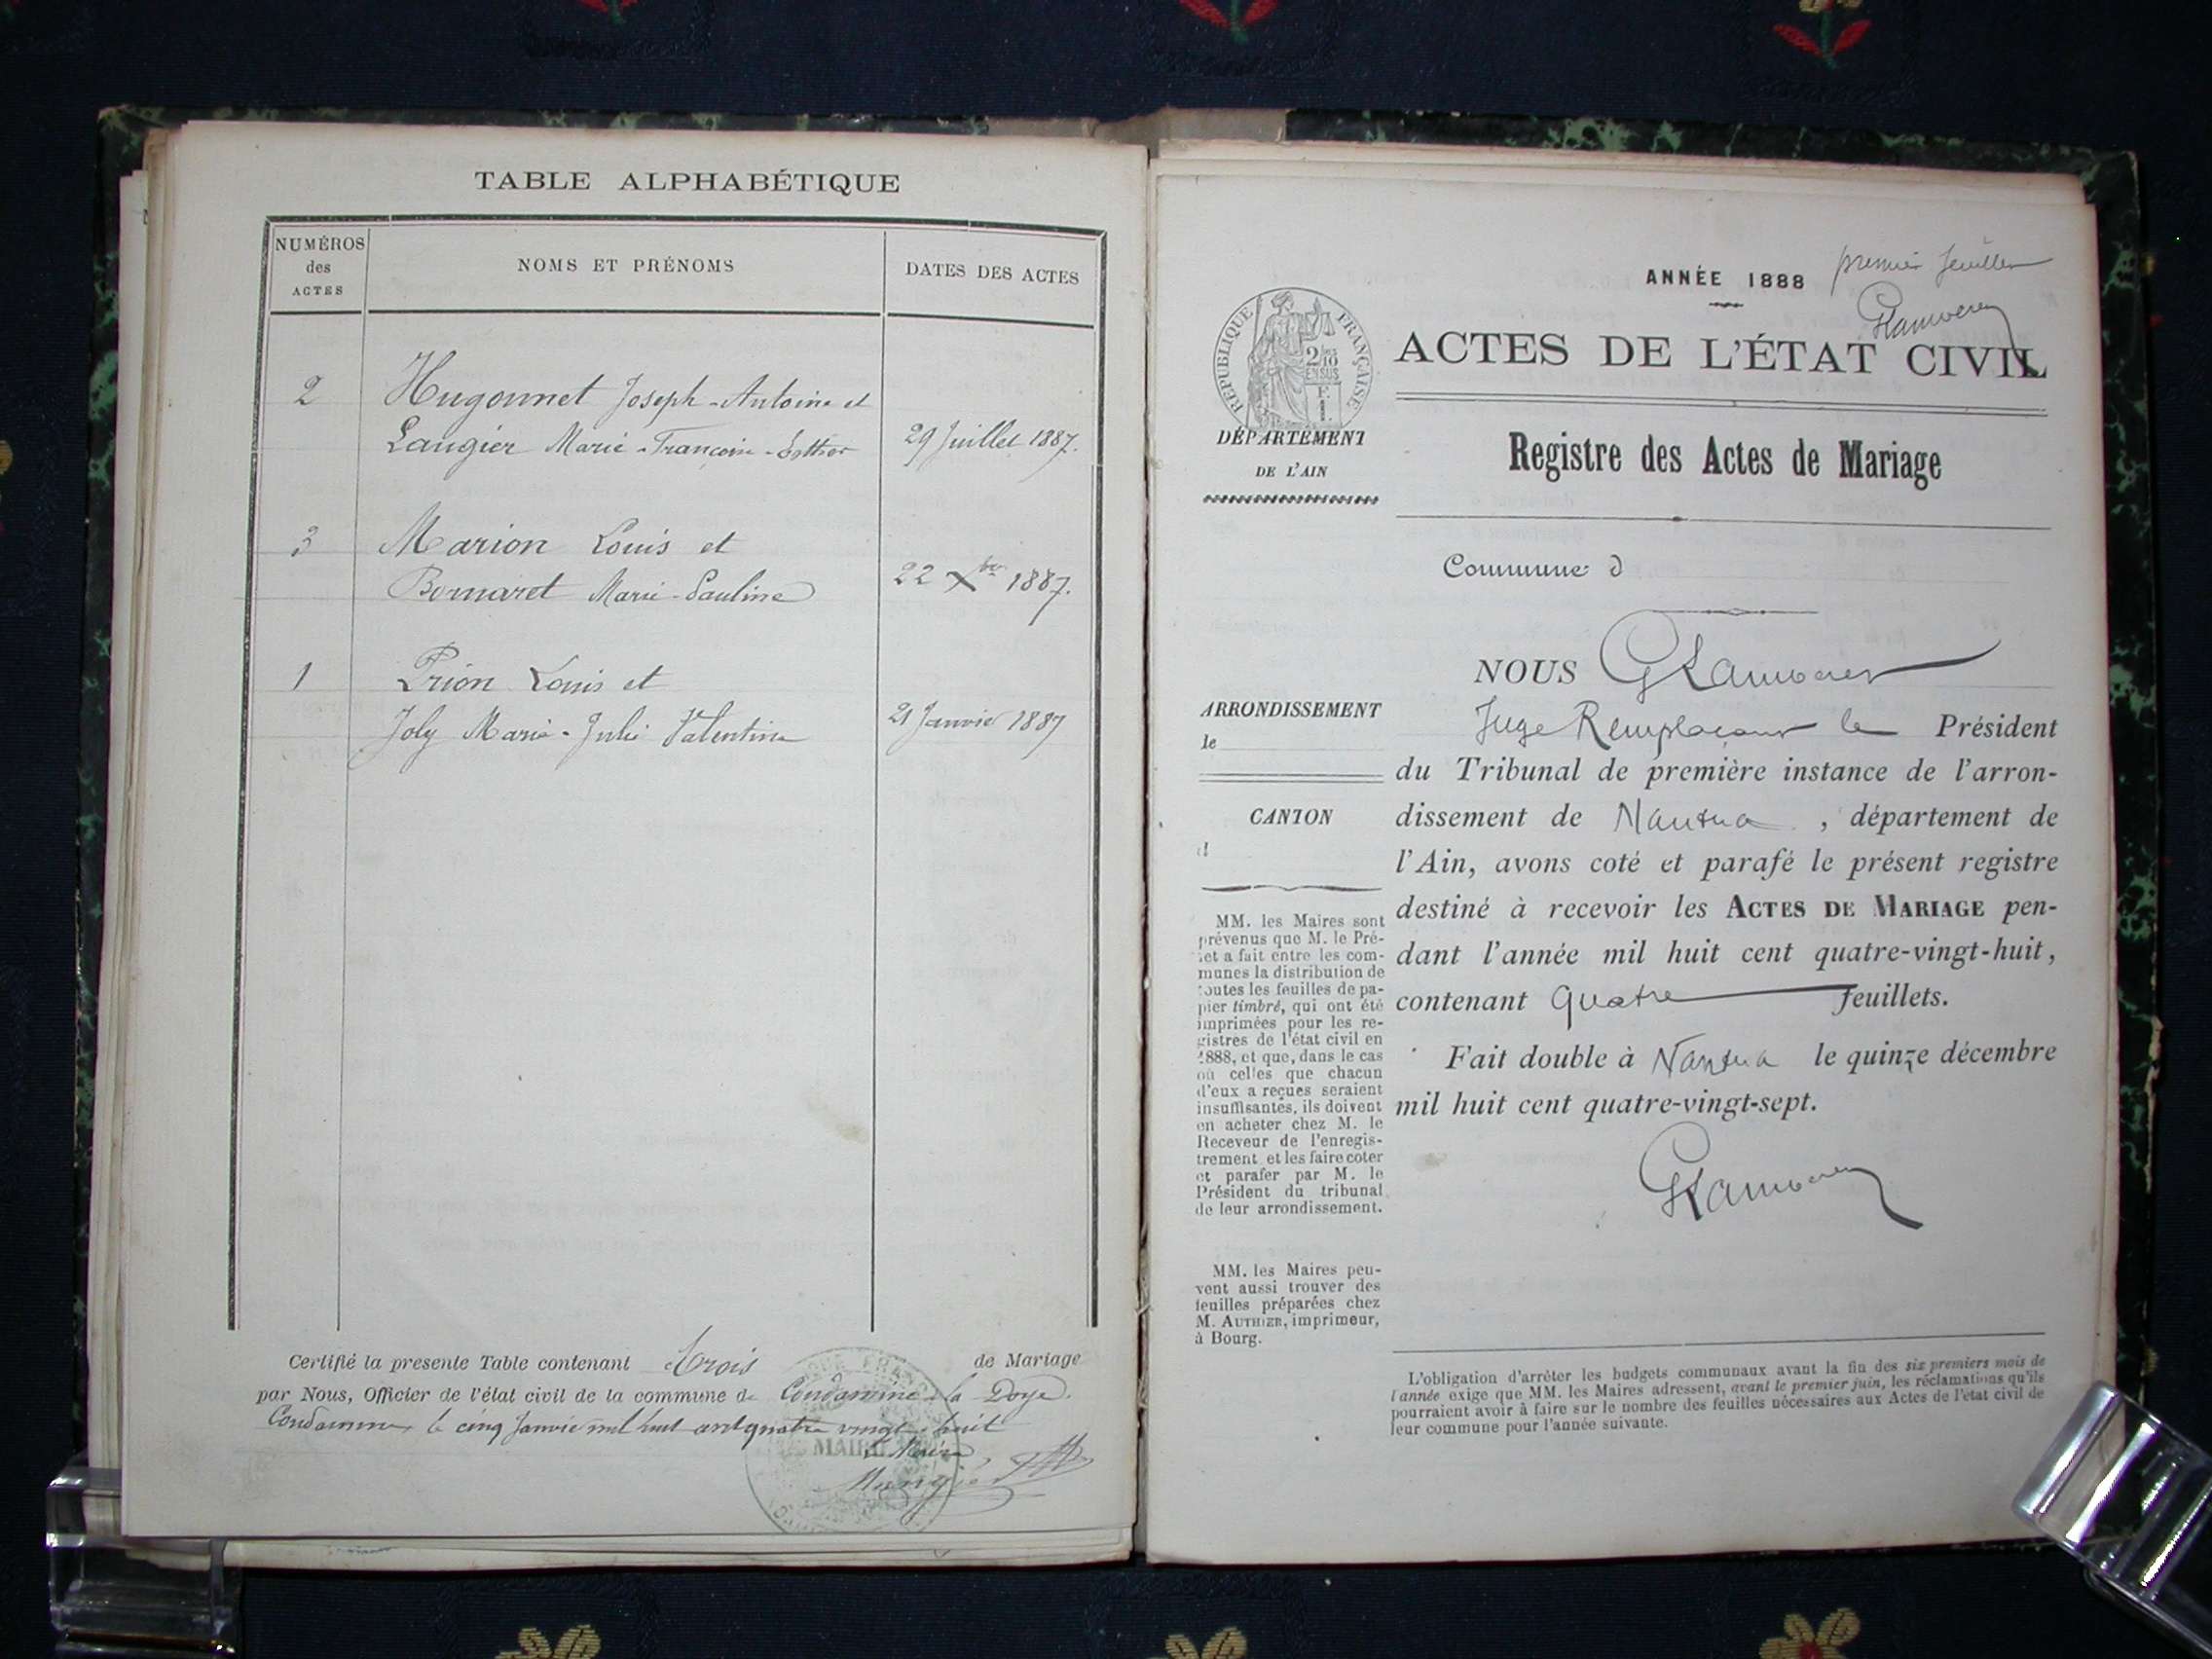 TABLE ALPHABÉTIQUE
NUMÉROS
des
ACTES
NOMS ET PRÉNOMS
DATES DES ACTES
2
Hugonnet Joseph-Antoine et
Laugier Marie-Françoise-Esther
29 Juillet 1887.
3
Marion Louis et
Bornaret Marie-Pauline
22 Xbre 1887.
1
Prion Louis et
Joly Marie-Julie Valentine
21 Janvier 1887
Certifié la presente Table contenant trois de Mariage
par Nous, Officier de l'état civil de la commune de Condamine la Doye.
Condamine, le cinq Janvier mil huit cent quatre vingt huit
Le Maire
MAIRIE
ANNÉE 1888
premier feuillet
RÉPUBLIQUE FRANÇAISE
2/10
EN SUS
ACTES DE L'ÉTAT CIVIL
DÉPARTEMENT
DE L'AIN
Registre des Actes de Mariage
Commune d
NOUS
ARRONDISSEMENT
le
CANTON
d
Juge Remplaçant le Président
du Tribunal de première instance de l'arron-
dissement de Nantua, département de
l'Ain, avons coté et parafé le présent registre
destiné à recevoir les ACTES DE MARIAGE pen-
dant l'année mil huit cent quatre-vingt-huit,
contenant quatre feuillets.
Fait double à Nantua le quinze décembre
mil huit cent quatre-vingt-sept.
MM. les Maires sont
prévenus que M. le Pré-
fet a fait entre les com-
munes la distribution de
toutes les feuilles de pa-
pier timbré, qui ont été
imprimées pour les re-
gistres de l'état civil en
1888, et que, dans le cas
où celles que chacun
d'eux a reçues seraient
insuffisantes, ils doivent
en acheter chez M. le
Receveur de l'enregis-
trement et les faire coter
et parafer par M. le
Président du tribunal
de leur arrondissement.
MM. les Maires peu-
vent aussi trouver des
feuilles préparées chez
M. AUTHIER, imprimeur,
à Bourg.
L'obligation d'arrêter les budgets communaux avant la fin des six premiers mois de
l'année exige que MM. les Maires adressent, avant le premier juin, les réclamations qu'ils
pourraient avoir à faire sur le nombre des feuilles nécessaires aux Actes de l'état civil de
leur commune pour l'année suivante.